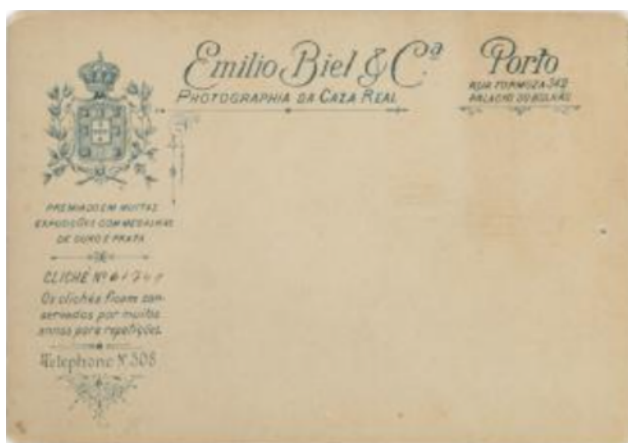 Emilio Biel & Cª
PHOTOGRAPHIA DA CAZA REAL
Porto
RUA FORMOZA 342
PALACIO DO BOLHÃO
PREMIADO EM MUITAS
EXPOSIÇÕES COM MEDALHAS
DE OURO E PRATA
CLICHÉ Nº
Os clichés ficam con-
servados por muitos
annos para repetições.
Telephone Nº 508